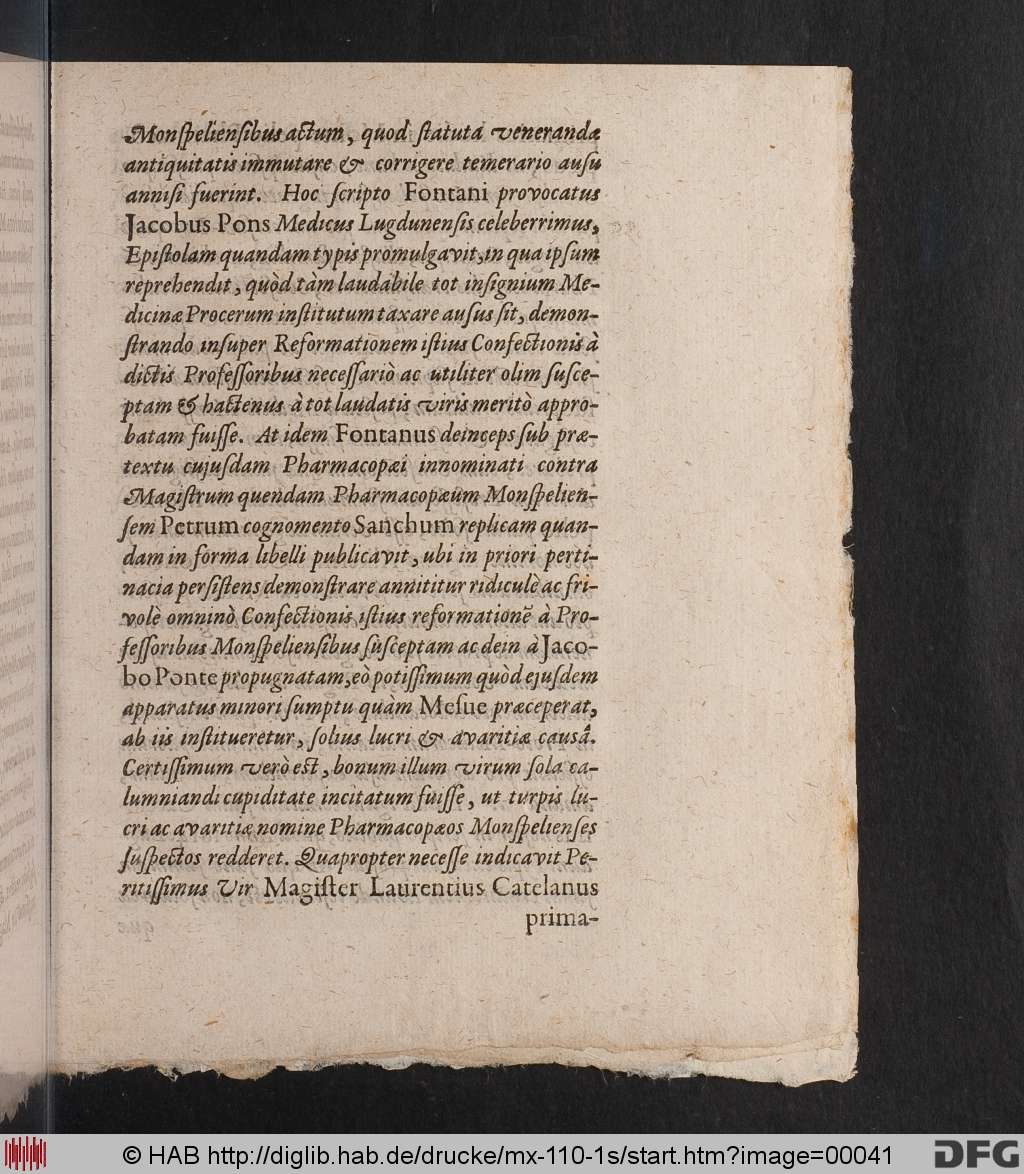 Monſpelienſibus actum, quod ſtatuta venerandæ
antiquitatis immutare & corrigere temerario auſu
anniſi fuerint. Hoc ſcripto Fontani provocatus
Jacobus Pons Medicus Lugdunenſis celeberrimus,
Epiſtolam quandam typis promulgavit, in qua ipſum
reprehendit, quòd tàm laudabile tot inſignium Me-
dicinæ Procerum inſtitutum taxare auſus ſit, demon-
ſtrando inſuper Reformationem iſtius Confectionis à
dictis Profeſſoribus neceſſariò ac utiliter olim ſuſce-
ptam & hactenus à tot laudatis viris meritò appro-
batam fuiſſe. At idem Fontanus deinceps ſub præ-
textu cujuſdam Pharmacopæi innominati contra
Magiſtrum quendam Pharmacopæum Monſpelien-
ſem Petrum cognomento Sanchum replicam quan-
dam in forma libelli publicavit, ubi in priori perti-
nacia perſiſtens demonſtrare annititur ridiculè ac fri-
volè omninò Confectionis iſtius reformationē à Pro-
feſſoribus Monſpelienſibus ſuſceptam ac dein à Jaco-
bo Ponte propugnatam, eò potiſſimum quòd ejuſdem
apparatus minori ſumptu quàm Meſue præceperat,
ab iis inſtitueretur, ſolius lucri & avaritiæ causâ.
Certiſſimum verò eſt, bonum illum virum ſola ca-
lumniandi cupiditate incitatum fuiſſe, ut turpis lu-
cri ac avaritiæ nomine Pharmacopæos Monſpelienſes
ſuſpectos redderet. Quapropter neceſſe indicavit Pe-
ritiſſimus Vir Magiſter Laurentius Catelanus
prima-
© HAB http://diglib.hab.de/drucke/mx-110-1s/start.htm?image=00041
DFG